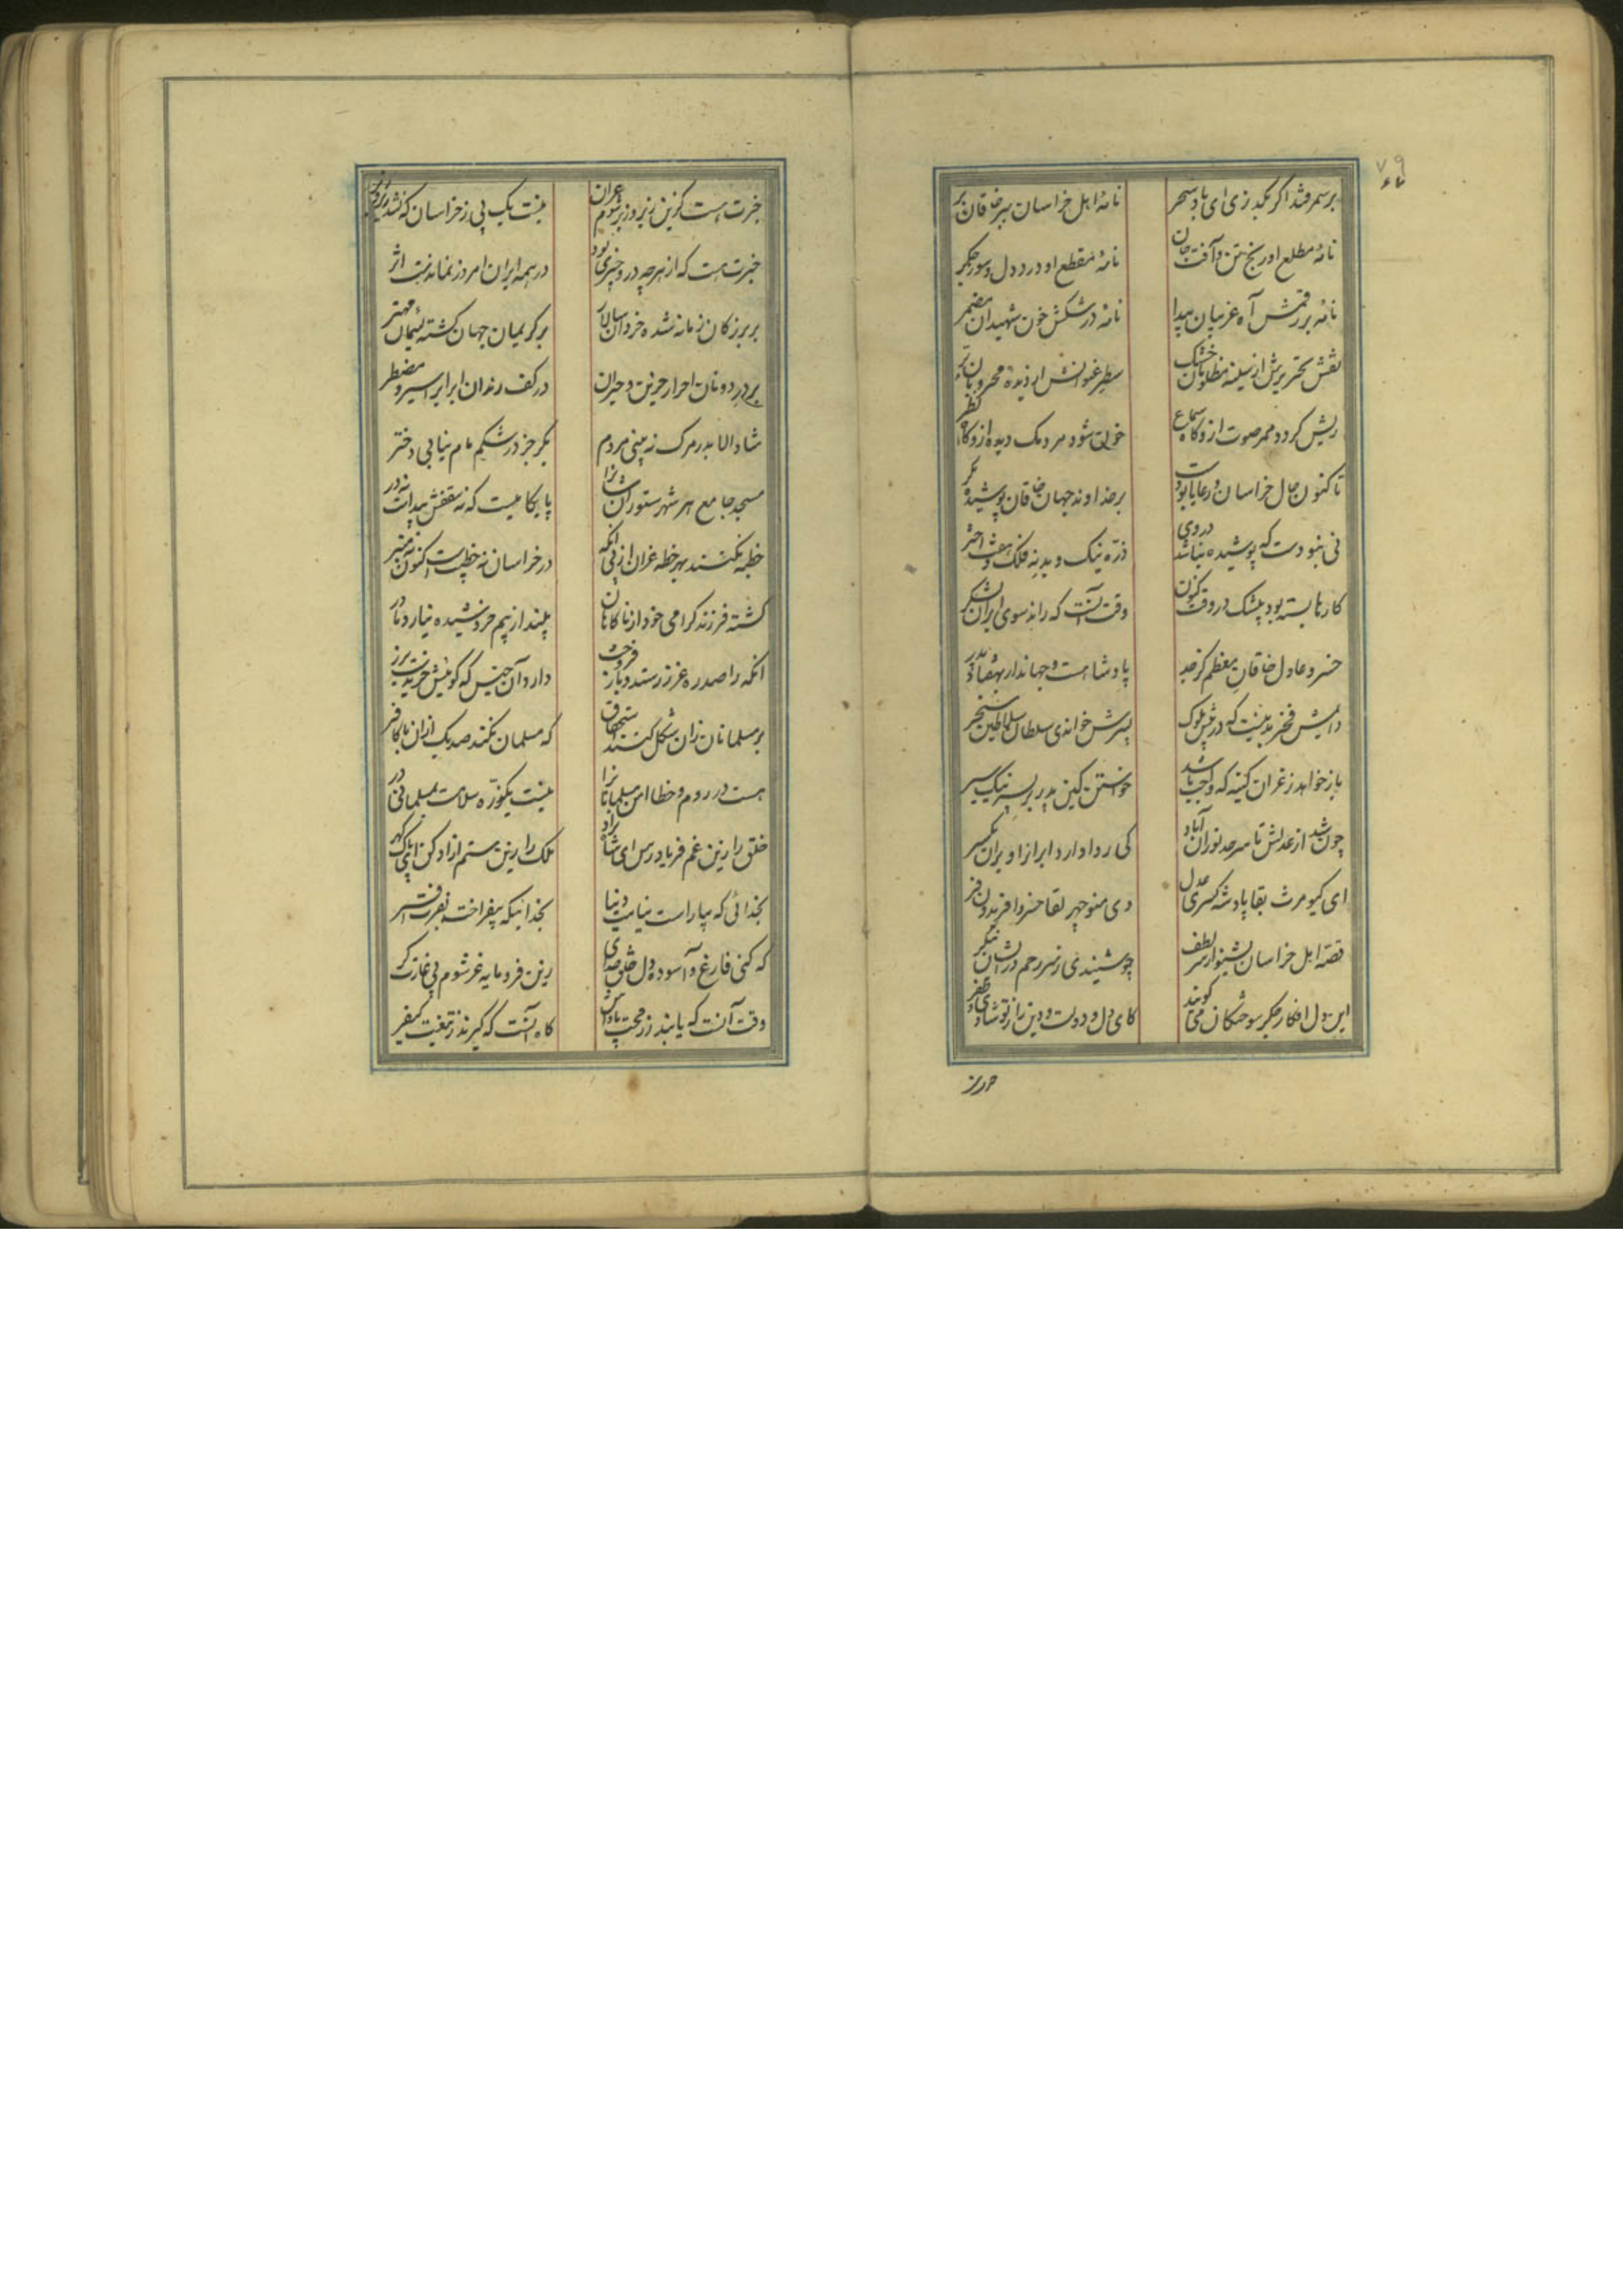 ۷۹
برسمرقند اگر بگذری ای باد سحر
نامهٔ اهل خراسان ببر خاقان بر
نامهٔ مطلع او رنج تن و آفت جان
نامهٔ مقطع او درد دل و سوز جگر
نامهٔ بر رقمش آه غریبان پیدا
نامهٔ در شکنش خون شهیدان مضمر
نقش تحریرش از سینهٔ مظلومان خشک
سطر عنوانش از دیدهٔ محرومان تر
ریش گردد ممر صوت ازو گاه سماع
خون شود مردمک دیده ازو گاه نظر
تا کنون حال خراسان و رعایا بودست
بر خداوند جهان خاقان پوشیده مگر
نی نبودست که پوشیده نباشد در وی
ذرهٔ نیک و بد نه فلک و هفت اختر
کارها بسته بود بیشک در وقت کنون
وقت آنست که راند سوی ایران لشکر
خسرو عادل خاقان معظم کز جد
پادشاهست و جهاندار بهفتاد پدر
دایمش فخر بدینست که در پیش ملوک
پسرش خواندی سلطان سلاطین سنجر
باز خواهد ز غزان کینه که واجب باشد
خواستن کین پدر بر پسر نیک سیر
چون شد از عدلش تا سرحد توران آباد
کی روا دارد ایران را ویران یکسر
ای کیومرث بقا پادشه کسری عدل
وی منوچهر لقا خسرو افریدون فر
قصهٔ اهل خراسان بشنو از سر لطف
چو شنیدی ز سر رحم در ایشان بنگر
این دل افکار جگر سوختگان می گویند
کای دل و دولت و دین را ز تو شادی و ظفر
خبرت هست کزین زیر و زبر شوم غزان
نیست یک پی ز خراسان که نشد زیر و زبر
خبرت هست که از هرچه درو چیزی بود
در همه ایران امروز نماندست اثر
بر بزرگان زمانه شده خردان سالار
بر کریمان جهان گشته لئیمان مهتر
بر در دونان احرار حزین و حیران
در کف رندان ابرار اسیر و مضطر
شاد الا بدر مرگ نه بینی مردم
بکر جز در شکم مام نیابی دختر
مسجد جامع هر شهر ستوران شان را
پایگاهیست که نه سقفش پیداست نه در
خطبه نکنند بهر خطه غزان از پی آنکه
در خراسان نه خطیب است کنون نه منبر
کشته فرزند گرامی خود از ناگاهان
بیند از بیم خروشیده نیارد مادر
آنکه را صدره غز زر ستد و باز فروخت
دارد آن جنس که گوئیش خریدست بزر
بر مسلمانان زان شکل کنند استخفاف
که مسلمان نکند صد یک از آن با کافر
هست در روم و خطا امن مسلمانان را
نیست یک ذره سلامت بمسلمانی در
خلق را زین غم فریاد رس ای شاه راد
ملک را زین ستم آزاد کن ای پاک گهر
بخدائی که بیاراست بنامت دینار
بخدائیکه بیفراخت بفرت افسر
که کنی فارغ و آسوده دل خلق خدای
زین فرومایه غز شوم پی غارت گر
وقت آنست که یابند ز رمحت پاداش
گاه آنست که گیرند ز تیغت کیفر